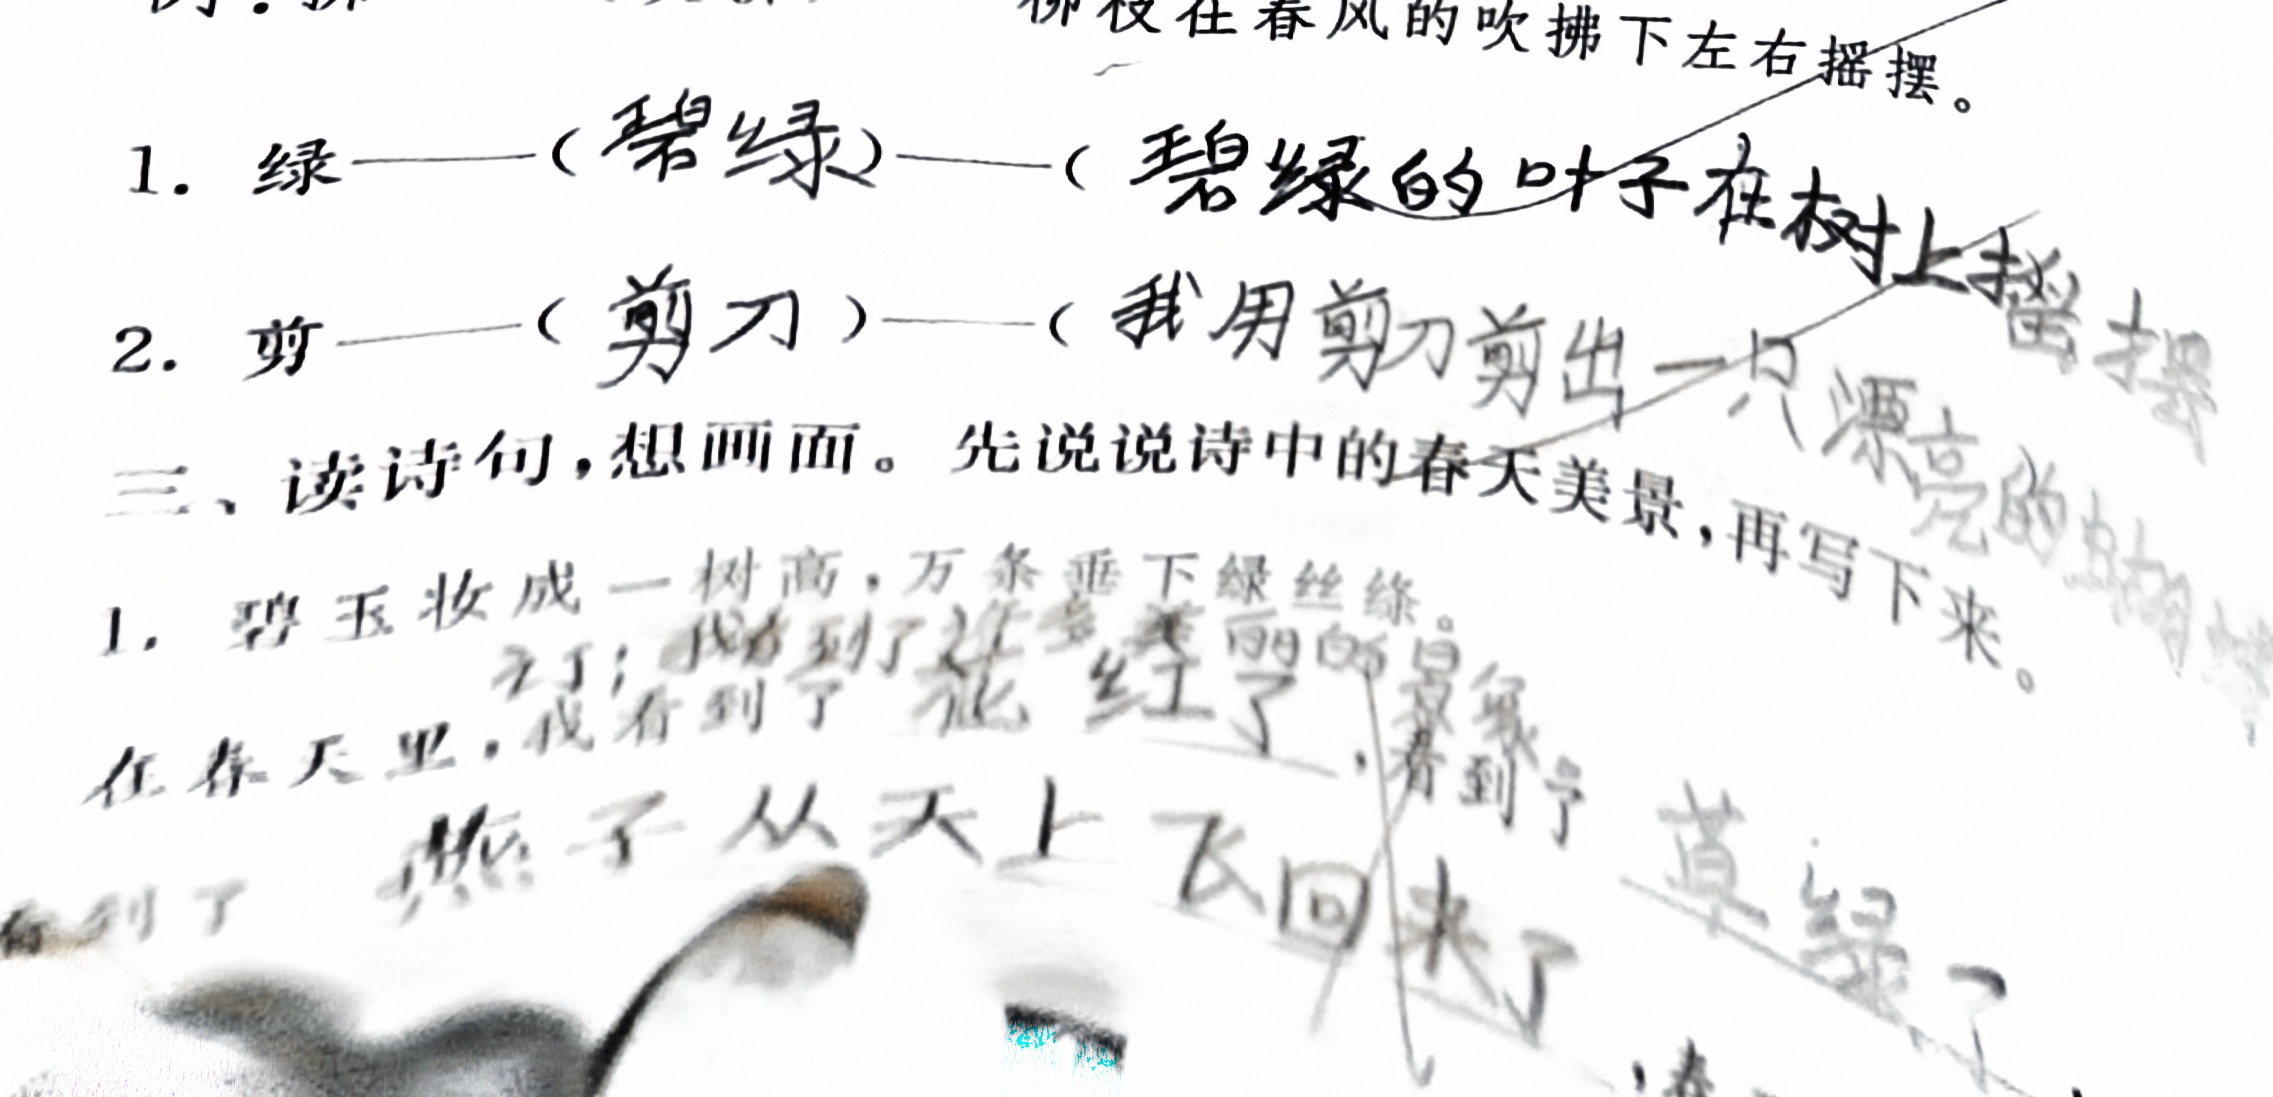 柳枝在春风的吹拂下左右摇摆。
1. 绿——(碧绿)——(碧绿的叶子在树上摇摆
2. 剪——(剪刀)——(我用剪刀剪出一只漂亮的蝴蝶
三、读诗句,想画面。先说说诗中的春天美景,再写下来。
1. 碧玉妆成一树高,万条垂下绿丝绦。
我看到了许多美丽的景
在春天里,我看到了花红了,看到了草绿了
看到了燕子从天上飞回来了,春